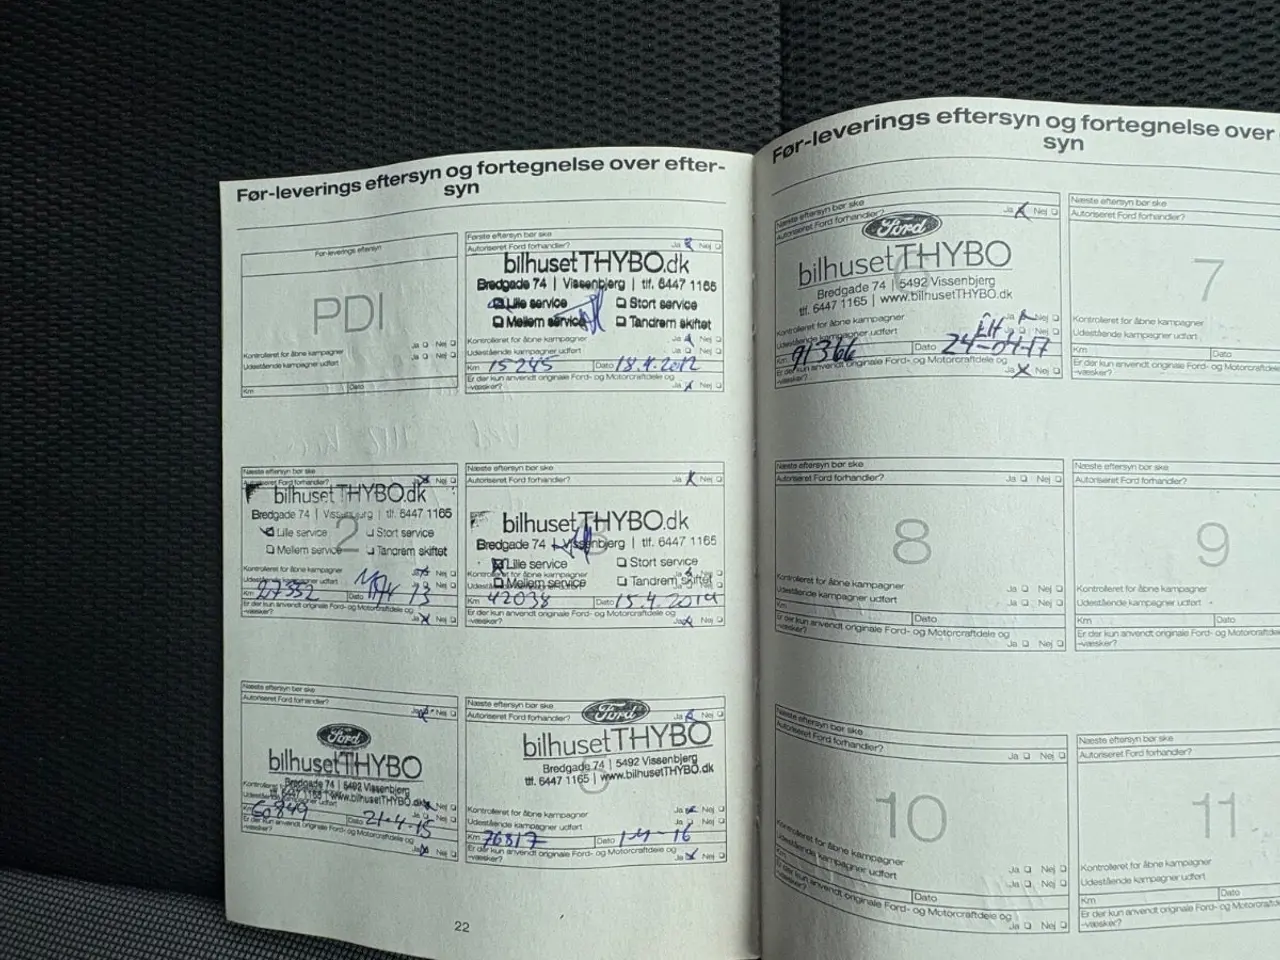 Før-leverings eftersyn og fortegnelse over efter-
syn
Før-leverings eftersyn
PDI
Kontrolleret for åbne kampagner
Ja Nej
Udestående kampagner udført
Ja Nej
Km Dato
Første eftersyn bør ske
Autoriseret Ford forhandler? Ja Nej
bilhusetTHYBO.dk
Bredgade 74 | Vissenbjerg | tlf. 6447 1165
Lille service Stort service
Mellem service Tandrem skiftet
Kontrolleret for åbne kampagner Ja Nej
Udestående kampagner udført Ja Nej
Km 15245 Dato 18.4.2012
Er der kun anvendt originale Ford- og Motorcraftdele og
-væsker? Ja Nej
Næste eftersyn bør ske
Autoriseret Ford forhandler? Nej
bilhusetTHYBO.dk
Bredgade 74 | Vissenbjerg | tlf. 6447 1165
2
Lille service Stort service
Mellem service Tandrem skiftet
Kontrolleret for åbne kampagner Ja Nej
Udestående kampagner udført Nej
Km 27332 Dato 13
Er der kun anvendt originale Ford- og Motorcraftdele og
-væsker? Ja Nej
Næste eftersyn bør ske
Autoriseret Ford forhandler? Ja Nej
bilhusetTHYBO.dk
Bredgade 74 | Vissenbjerg | tlf. 6447 1165
Lille service Stort service
Kontrolleret for åbne kampagner Nej
Mellem service Tandrem skiftet
Km 42038 Dato 15.4.2014
Er der kun anvendt originale Ford- og Motorcraftdele og
-væsker? Ja Nej
Næste eftersyn bør ske
Autoriseret Ford forhandler? Ja Nej
Ford
bilhusetTHYBO
Bredgade 74 | 5492 Vissenbjerg
tlf. 6447 1165 | www.bilhusetTHYBO.dk
Kontrolleret for åbne kampagner Nej
Udestående kampagner udført Ja Nej
60849 Dato 21-4-15
Er der kun anvendt originale Ford- og Motorcraftdele og
-væsker? Ja Nej
Næste eftersyn bør ske
Autoriseret Ford forhandler? Ja Nej
Ford
bilhusetTHYBO
Bredgade 74 | 5492 Vissenbjerg
tlf. 6447 1165 | www.bilhusetTHYBO.dk
Kontrolleret for åbne kampagner Ja Nej
Udestående kampagner udført Ja Nej
Km 76817 Dato 16
Er der kun anvendt originale Ford- og Motorcraftdele og
-væsker? Ja Nej
22
Før-leverings eftersyn og fortegnelse over
syn
Næste eftersyn bør ske
Autoriseret Ford forhandler? Ja Nej
Ford
bilhusetTHYBO
Bredgade 74 | 5492 Vissenbjerg
tlf. 6447 1165 | www.bilhusetTHYBO.dk
Kontrolleret for åbne kampagner Ja Nej
Udestående kampagner udført Ja Nej
91366 Dato 24-04-17
Er der kun anvendt originale Ford- og Motorcraftdele og
-væsker? Ja Nej
Næste eftersyn bør ske
Autoriseret Ford forhandler?
7
Kontrolleret for åbne kampagner
Udestående kampagner udført
Km Dato
Er der kun anvendt originale Ford- og Motorcraftdele
-væsker?
Næste eftersyn bør ske
Autoriseret Ford forhandler? Ja Nej
8
Kontrolleret for åbne kampagner Ja Nej
Udestående kampagner udført Ja Nej
Km Dato
Er der kun anvendt originale Ford- og Motorcraftdele og
-væsker? Ja Nej
Næste eftersyn bør ske
Autoriseret Ford forhandler?
9
Kontrolleret for åbne kampagner
Udestående kampagner udført
Km Dato
Er der kun anvendt originale Ford- og Motorcraftdele
-væsker?
Næste eftersyn bør ske
Autoriseret Ford forhandler? Ja Nej
10
Kontrolleret for åbne kampagner
Ja Nej
Udestående kampagner udført
Ja Nej
Km Dato
Er der kun anvendt originale Ford- og Motorcraftdele og
-væsker? Ja Nej
Næste eftersyn bør ske
Autoriseret Ford forhandler?
11
Kontrolleret for åbne kampagner
Udestående kampagner udført
Km Dato
Er der kun anvendt originale Ford- og Motorcraftdele
-væsker?